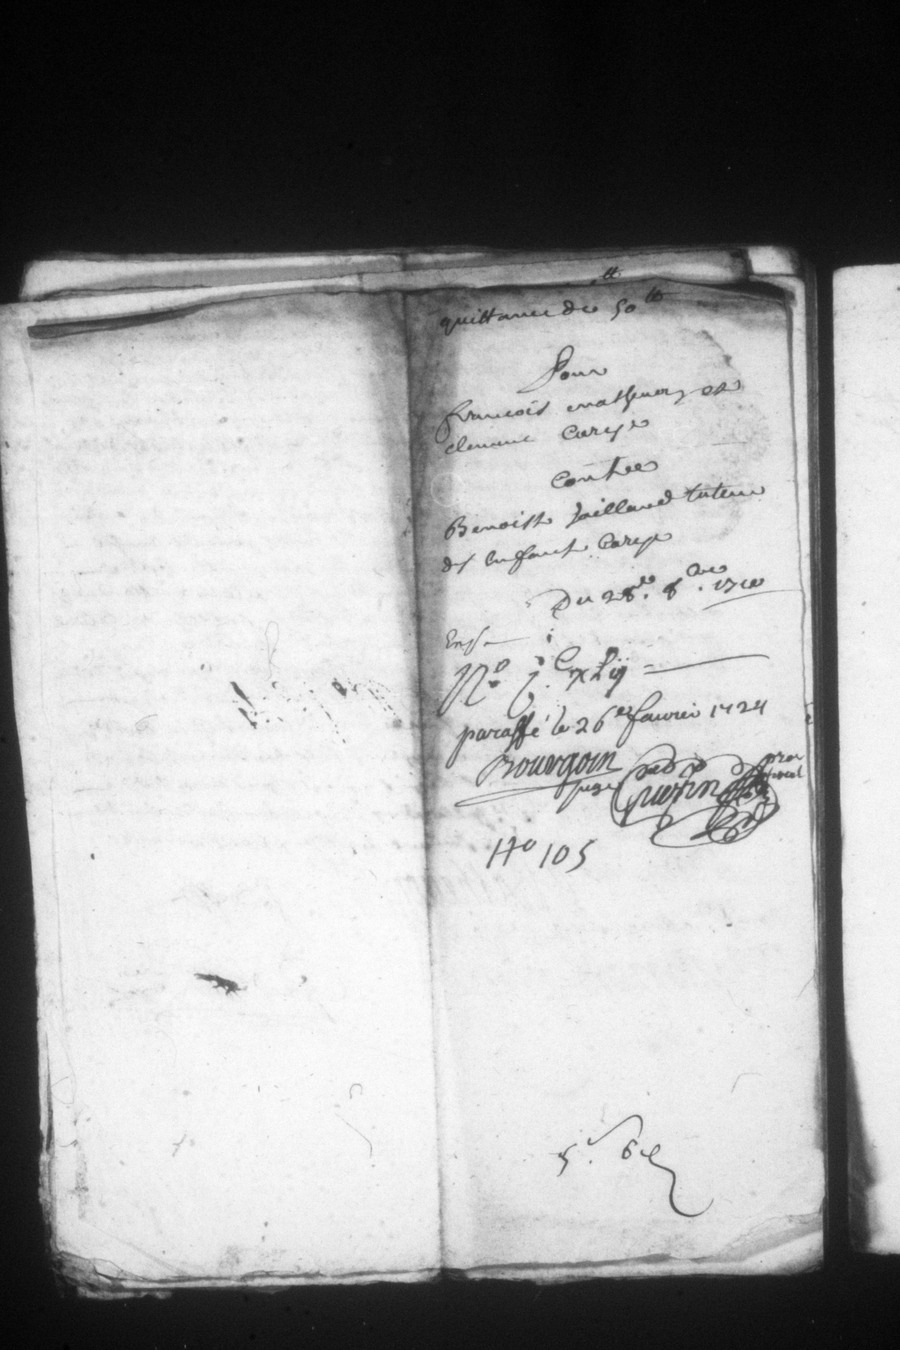 quittance de 50 tt
Pour
francois mathevon et
clemence carège
contre
Benoist Gaillard tuteur
des enfants Carège
Du 28e 8bre 1710
No j C xLij
paraffé le 26e fevrier 1724
Bourgoin
juge Guerin
No 105
5 s 6 d